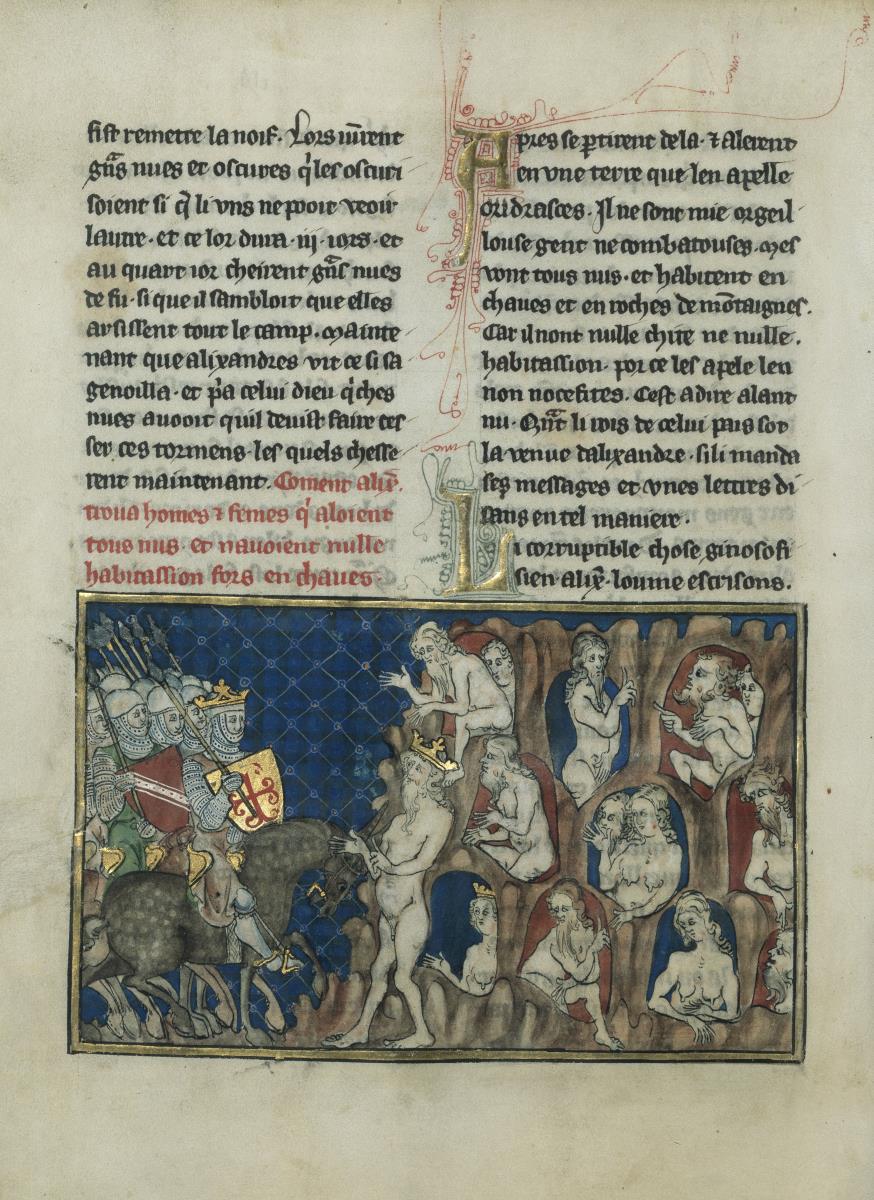 fist remetre la noif. Lors iurent
gñs nues et oscures q̃ les oscuri
soient si q̃ li vns ne pooit veoir
lautre. et ce lor dura .iij. iors. et
au quart ior cheirent gñs nues
de fu. si que il sambloit que elles
arsissent tout le camp. Mainte
nant que alixandres vit ce si sa
genoilla. et p̃a celui dieu q̃ ches
nues auooit quil deuist faire ces
ser ces tormens. les quels chesse
rent maintenant. Coment alix̃.
troua homes ⁊ femes q̃ aloient
tous nus. et nauoient nulle
habitassion fors en chaues.
Apres se ꝑtirent de la. ⁊ alerent
en vne terre que len apelle
oxidrasces. Il ne sont mie orgeil
louse gent ne combatouses. Mes
vont tous nus. et habitent en
chaues et en roches de mõtaignes.
Car il nont nulle chite ne nulle.
habitassion. por ce les apele len
non nocesites. Cest a dire alant
nu. Qñt li rois de celui pais sot
la venue dalixandre. si li manda
ses messages et vnes lettres di
sans en tel maniere.
Li corruptible chose ginosofi
sien alix̃. loume escrisons.